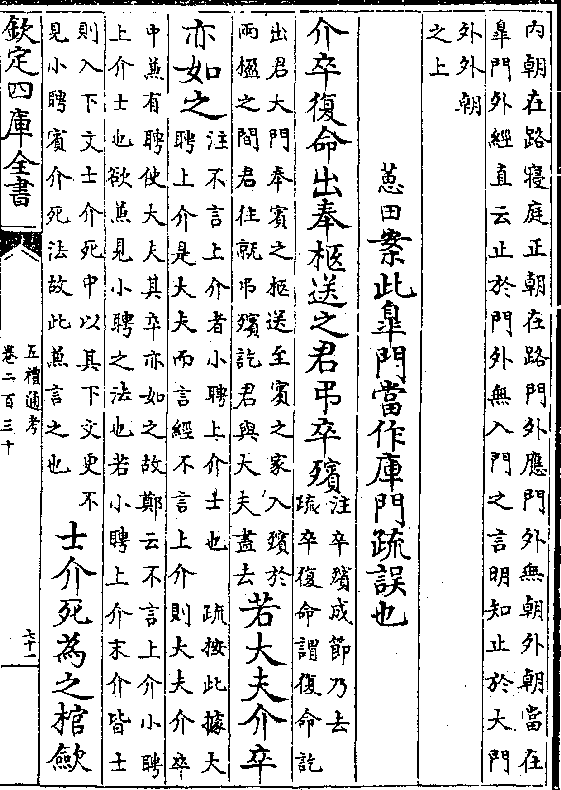 内朝在路寝庭正朝在路門外應門外無朝外朝當在
臯門外經直云止於門外無入門之言明知止於大門
外外朝
之上
蕙田案此臯門當作庫門疏誤也
介卒復命出奉柩送之君弔卒殯
注卒殯成節乃去
疏卒復命謂復命訖
出君大門奉賓之柩送至賓之家入殯於
兩楹之間君往就弔殯訖君與大夫盡去
若大夫介卒
亦如之
注不言上介者小聘上介士也
疏按此據大
聘上介是大夫而言經不言上介則大夫介卒
中兼有聘使大夫其卒亦如之故鄭云不言上介小聘
上介士也欲兼見小聘之法也若小聘上介末介皆士
則入下文士介死中以其下文更不
見小聘賓介死法故此兼言之也
士介死為之棺歛
欽定四庫全書
五禮通考
卷二百三十
七十二